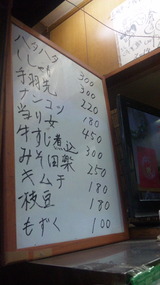 ハタハタ 300
ししゃも 300
手羽先 220
ナンコツ 180
当り女 450
牛すじ煮込 300
みそ田楽 250
キムチ 180
枝豆 180
もずく 100